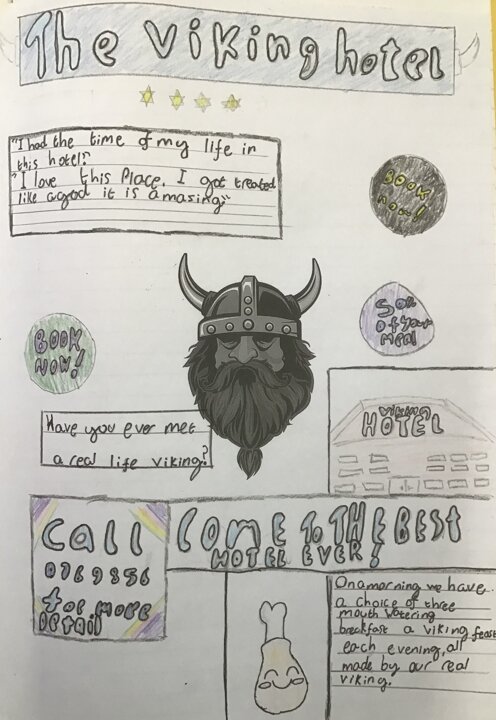 The viking hotel
"I had the time of my life in
this hotel."
"I love this Place. I got treated
like a god it is amasing"
BOOK
now!
50%
of your
meal
BOOK
NOW!
Have you ever met
a real life viking?
viking
HOTEL
Call
0769856
for more
Detail
COME TO THE BEST
HOTEL EVER!
On a morning we have
a choice of three
mouth watering
breakfast a viking feast
each evening, all
made by our real
viking.